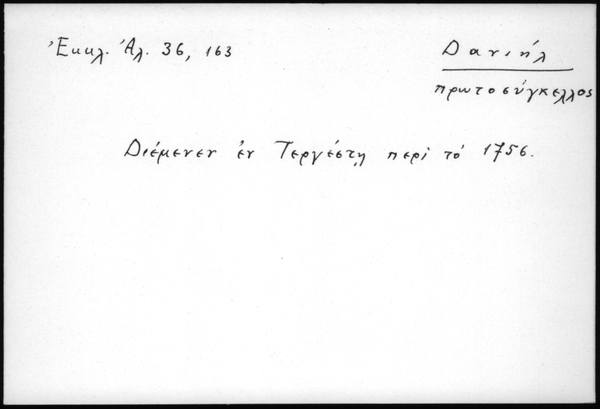 Ἐκκλ. Ἀλ. 36, 163
Δανιήλ
πρωτοσύγκελλος
Διέμενεν ἐν Τεργέστῃ περὶ τὸ 1756.